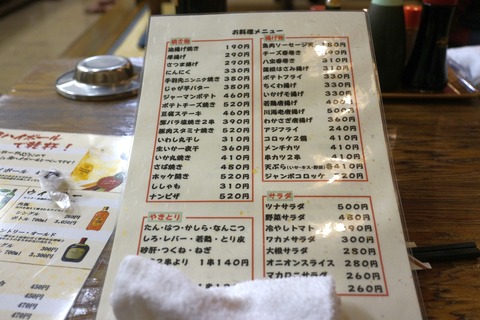 お料理メニュー
焼き物
油揚げ焼き 190円
厚揚げ 290円
さつま揚げ 290円
にんにく 330円
手羽元ニンニク焼き
じゃが芋バター 380円
ジャーマンポテト 460円
ポテトチーズ焼き 520円
豆腐ステーキ 460円
豚バラ塩焼き2串 390円
豚肉スタミナ焼き 520円
いわし丸干し 310円
生いか一夜干 360円
いか丸焼き 410円
さば焼き 480円
ホッケ開き 520円
ししゃも 310円
ナンピザ 520円
やきとり
たん・はつ・かしら・なんこつ
しろ・レバー・若鶏・とり皮
砂肝・つくね・ねぎ
2串より 1串140円
揚げ物
魚肉ソーセージ天 280円
チーズ春巻き
八宝春巻き 310円
蓮根はさみ揚げ 310円
ポテトフライ 330円
ちくわ磯揚げ 330円
いかげそ揚げ 330円
若鶏唐揚げ 400円
川海老唐揚げ 500円
わかさぎ唐揚げ 360円
アジフライ 240円
コロッケ2個
メンチカツ
串カツ2串
天ぷら
ジャンボコロッケ
サラダ
ツナサラダ 500円
野菜サラダ 480円
冷やしトマト 390円
ワカメサラダ 300円
大根サラダ 280円
オニオンスライス 280円
マカロニサラダ 260円
260円
ハイボール
シングル
シングル
450円
470円